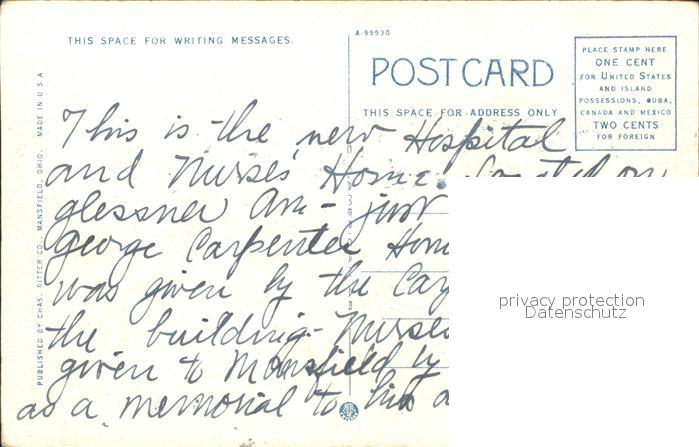 THIS SPACE FOR WRITING MESSAGES.
A-99930
POST CARD
THIS SPACE FOR ADDRESS ONLY
PLACE STAMP HERE
ONE CENT
FOR UNITED STATES
AND ISLAND
POSSESSIONS, CUBA,
CANADA AND MEXICO
TWO CENTS
FOR FOREIGN
PUBLISHED BY CHAS. RITTER CO., MANSFIELD, OHIO. MADE IN U S A
This is the new Hospital
and Nurses' Home. Located on
Glessner Ave - just
George Carpenter Hom
was given by the
the building - Nurses
given to Mansfield by
as a memorial to his
privacy protection
Datenschutz